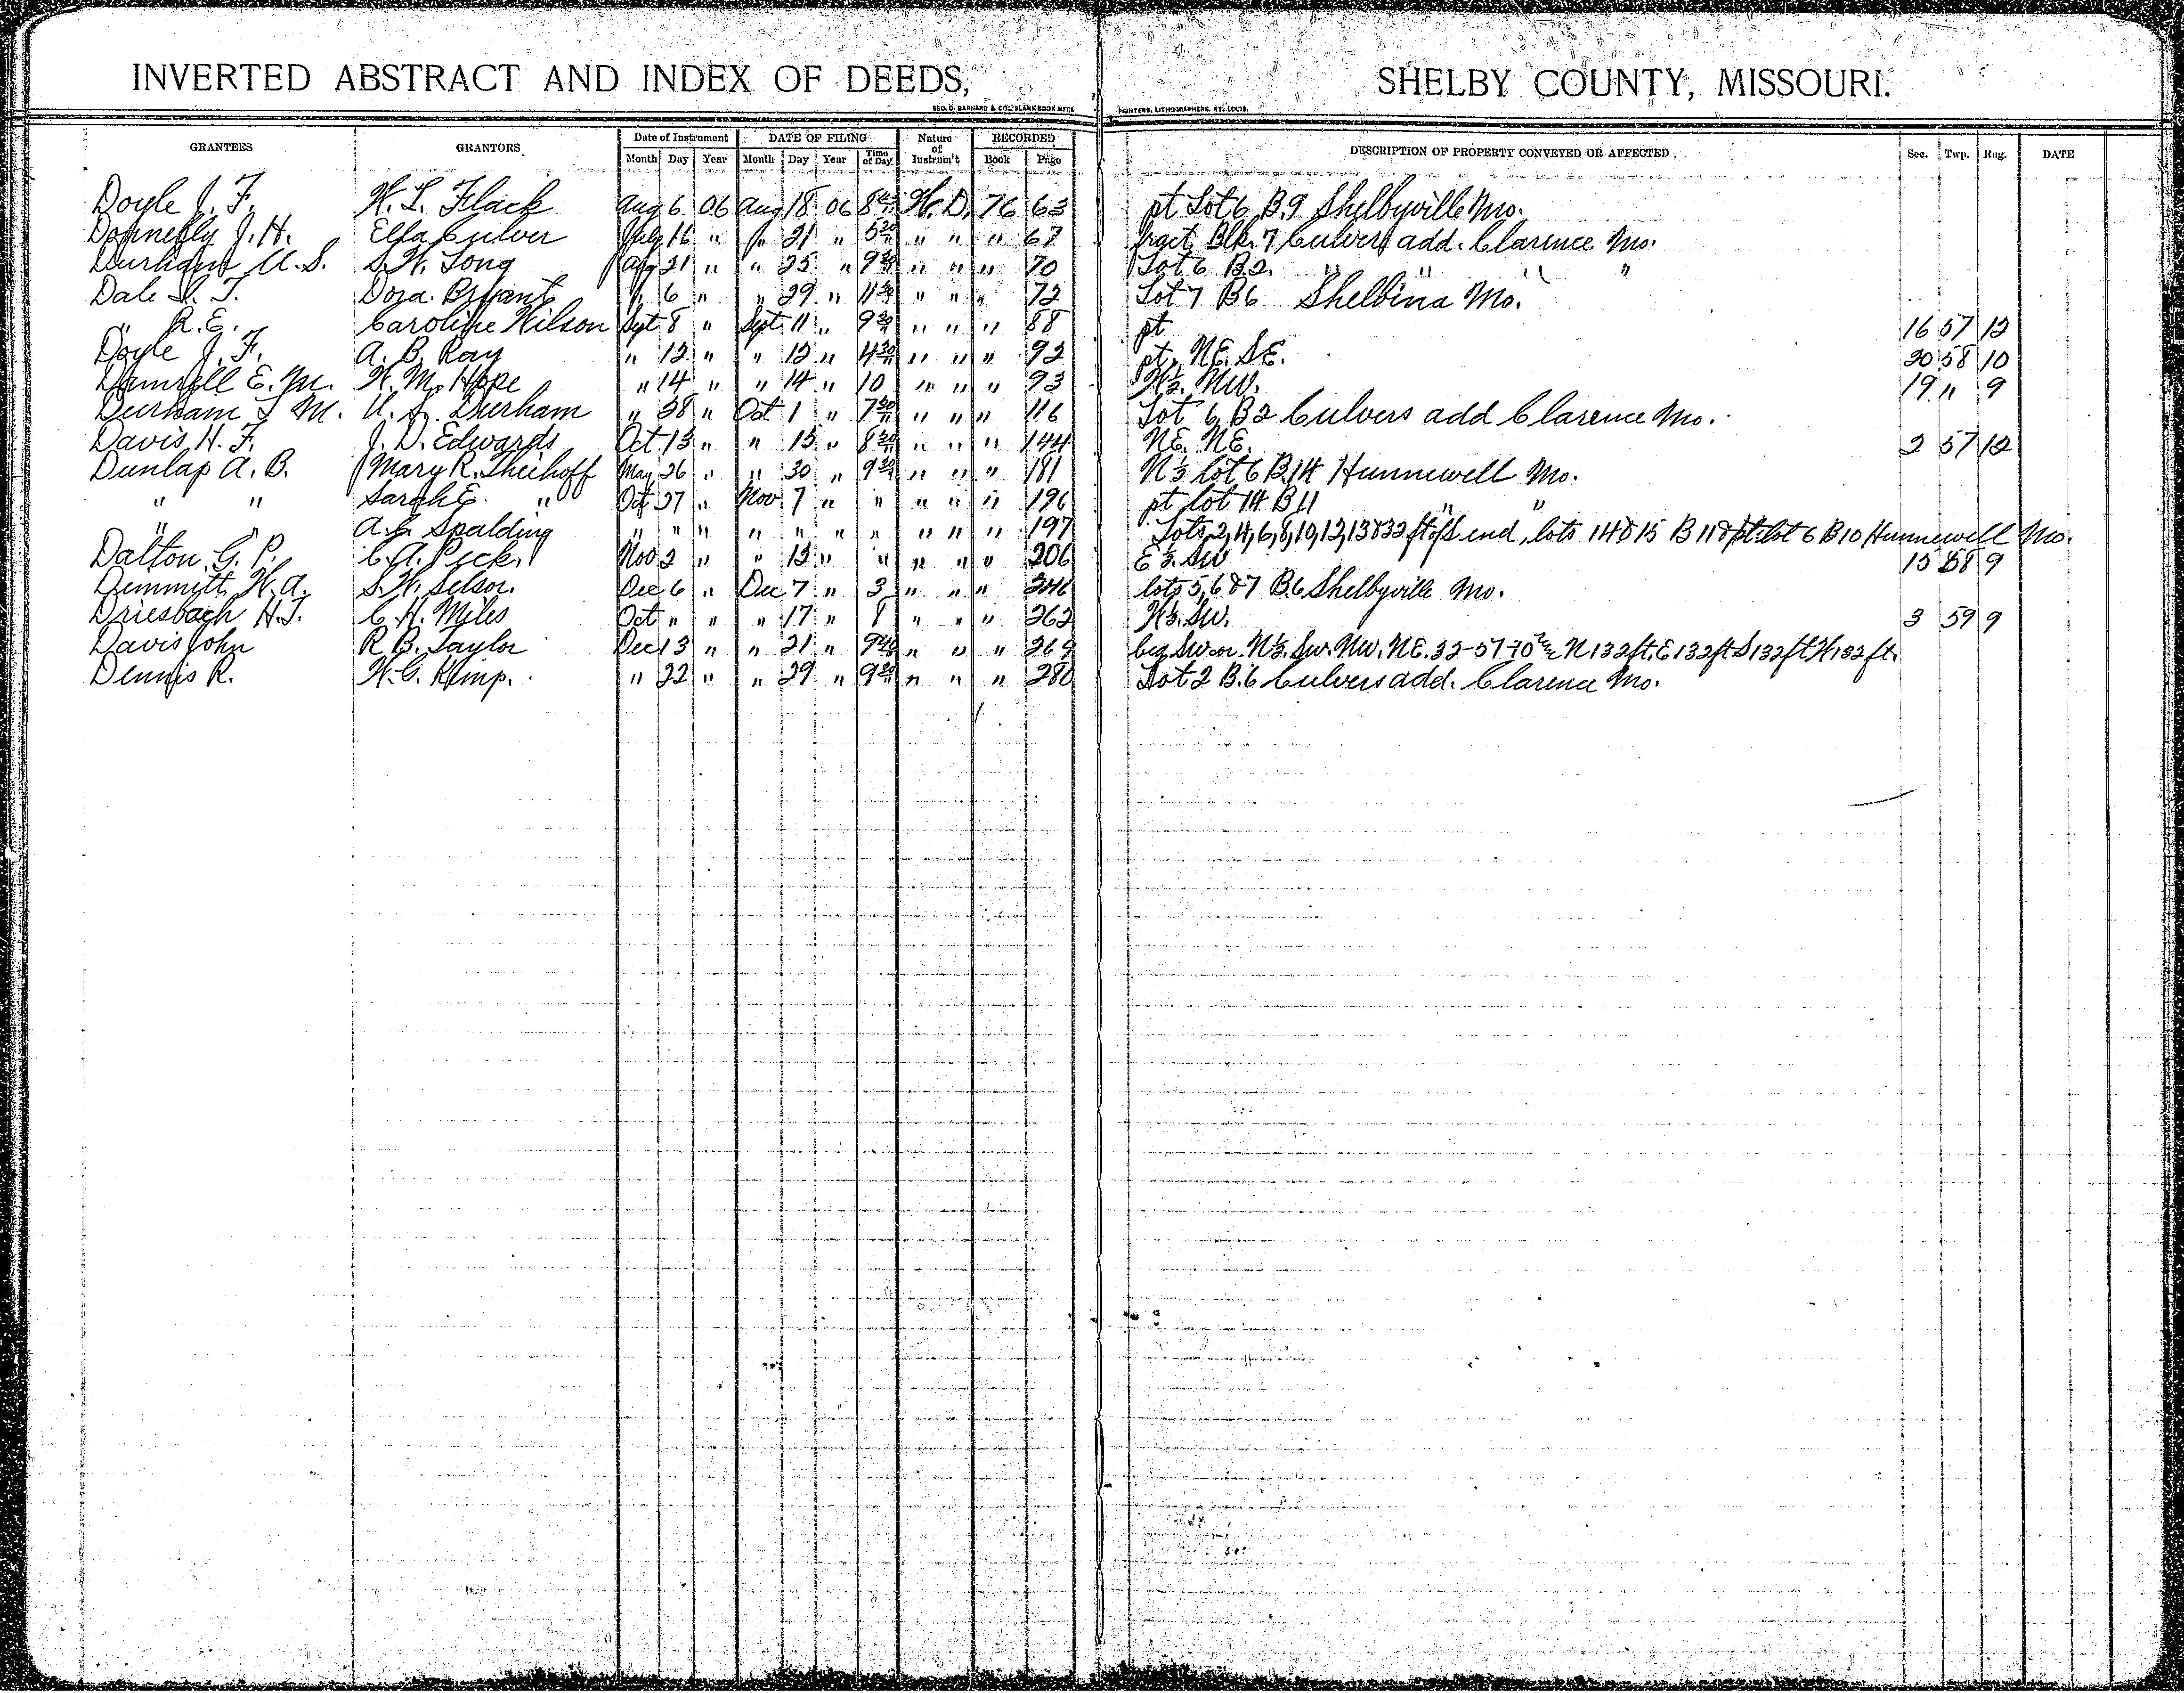 INVERTED ABSTRACT AND INDEX OF DEEDS, SHELBY COUNTY, MISSOURI.
GEO. D. BARNARD & CO., BLANK BOOK MFRS. PRINTERS, LITHOGRAPHERS, ST. LOUIS.
GRANTEES GRANTORS Date of Instrument DATE OF FILING Nature of Instrum't RECORDED DESCRIPTION OF PROPERTY CONVEYED OR AFFECTED. Sec. Twp. Rng. DATE
Month Day Year Month Day Year Time of Day Book Page
Doyle J. F. W. L. Flack Aug 6 06 Aug 18 06 W. D. 76 63 pt Lot 6 B. 9 Shelbyville Mo.
Donnefly J. H. Ella Culver July 16 " " 21 " 5 30 " " " 67 fract. Blk. 7 Culvers add. Clarence Mo.
Durham U. S. S. W. Long Aug 21 " " 25 " 9 30 " " " 70 Lot 6 B 2. " " " "
Dale T. Dora Bryant " 6 " " 29 " 11 30 " " " 72 Lot 7 B 6 Shelbina Mo.
" R. E. Caroline Wilson Sept 8 " Sept 11 " 9 30 " " " 88 pt 16 57 12
Doyle J. F. A. B. Ray " 12 " " 12 " 4 30 " " " 92 pt. NE. SE. 20 58 10
Damrell E. M. W. M. Hope " 14 " " 14 " 10 " " " 93 W½. NW. 19 " 9
Durham L M. U. S. Durham " 28 " Oct 1 " 7 30 " " " 116 Lot 6 B 2 Culvers add Clarence Mo.
Davis H. F. J. D. Edwards Oct 13 " " 15 " 8 30 " " " 144 NE. NE. 2 57 12
Dunlap A. B. Mary R. Theihoff May 26 " " 30 " 9 30 " " " 181 N½ lot 6 B. 14 Hunnewell Mo.
" " Sarah E. " Oct 27 " Nov 7 " " " " " 196 pt lot 14 B 11 " "
" " A. G. Spalding " " " " " " " " " " 197 Lots 2, 4, 6, 8, 10, 12, 13 & 32 ft off S end, lots 14 & 15 B 11 & pt. lot 6 B 10 Hunnewell Mo.
Dalton G. P. C. A. Peck. Nov 2 " " 13 " " " " " 206 E½. SW 15 58 9
Demmitt W. A. S. W. Selsor. Dec 6 " Dec 7 " 3 " " " 246 lots 5, 6 & 7 B. 6 Shelbyville Mo.
Driesbach H. J. C. H. Miles Oct " " " 17 " 8 " " " 262 W½. SW. 3 59 9
Davis John R. B. Taylor Dec 13 " " 21 " 9 " " " 269 beg. SW cor. N½. SW. NW. NE. 32-57-10 N 132 ft. E 132 ft S 132 ft W 132 ft.
Dennis R. W. G. Kimp. " 22 " " 29 " 9 30 " " " 280 Lot 2 B. 6 Culvers add. Clarence Mo.